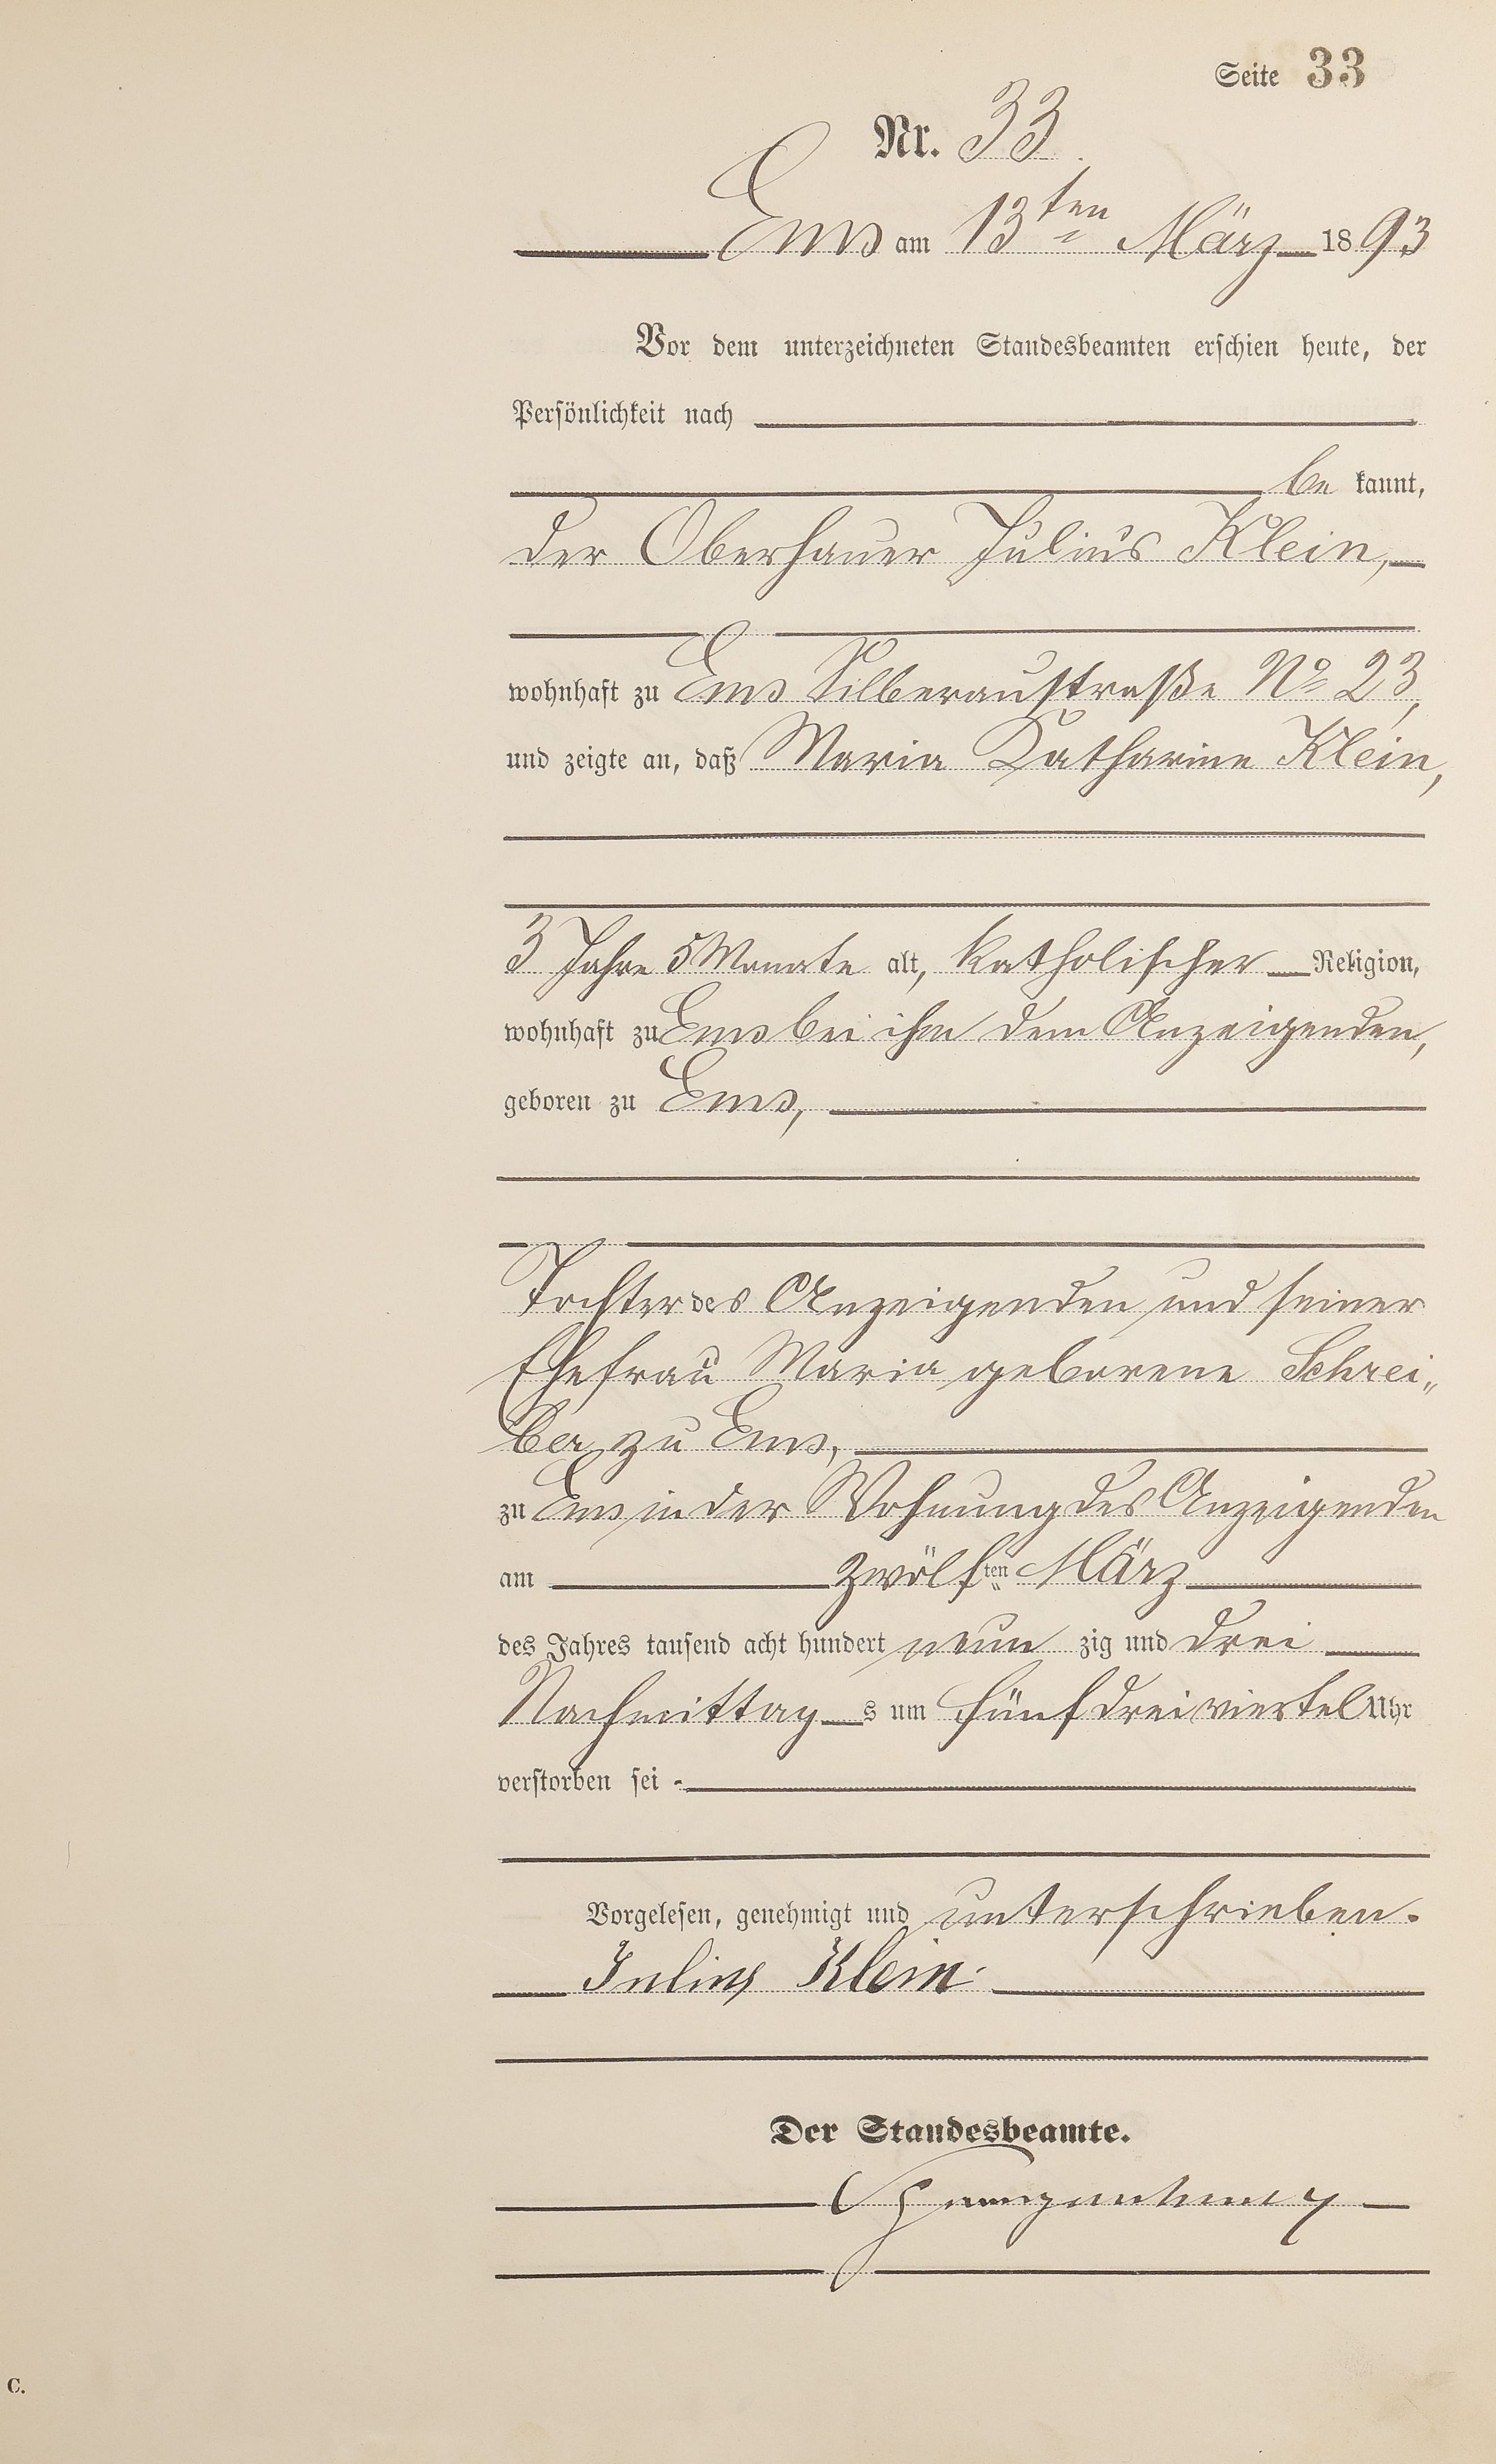 Seite 33
Nr. 33
Ems am 13ten März 1893
Vor dem unterzeichneten Standesbeamten erschien heute, der
Persönlichkeit nach
be kannt,
der Oberhauer Julius Klein,
wohnhaft zu Ems Silberaustraße No 23,
und zeigte an, daß Maria Katharine Klein,
3 Jahre 5 Monate alt, katholischer Religion,
wohnhaft zu Ems bei ihm dem Anzeigenden,
geboren zu Ems,
Tochter des Anzeigenden und seiner
Ehefrau Maria geborene Schrei„
ber zu Ems,
zu Ems in der Wohnung des Anzeigenden
am zwölften März
des Jahres tausend acht hundert neun zig und drei
Nachmittag s um fünf dreiviertel Uhr
verstorben sei
Vorgelesen, genehmigt und unterschrieben.
Julius Klein.
Der Standesbeamte.
C.